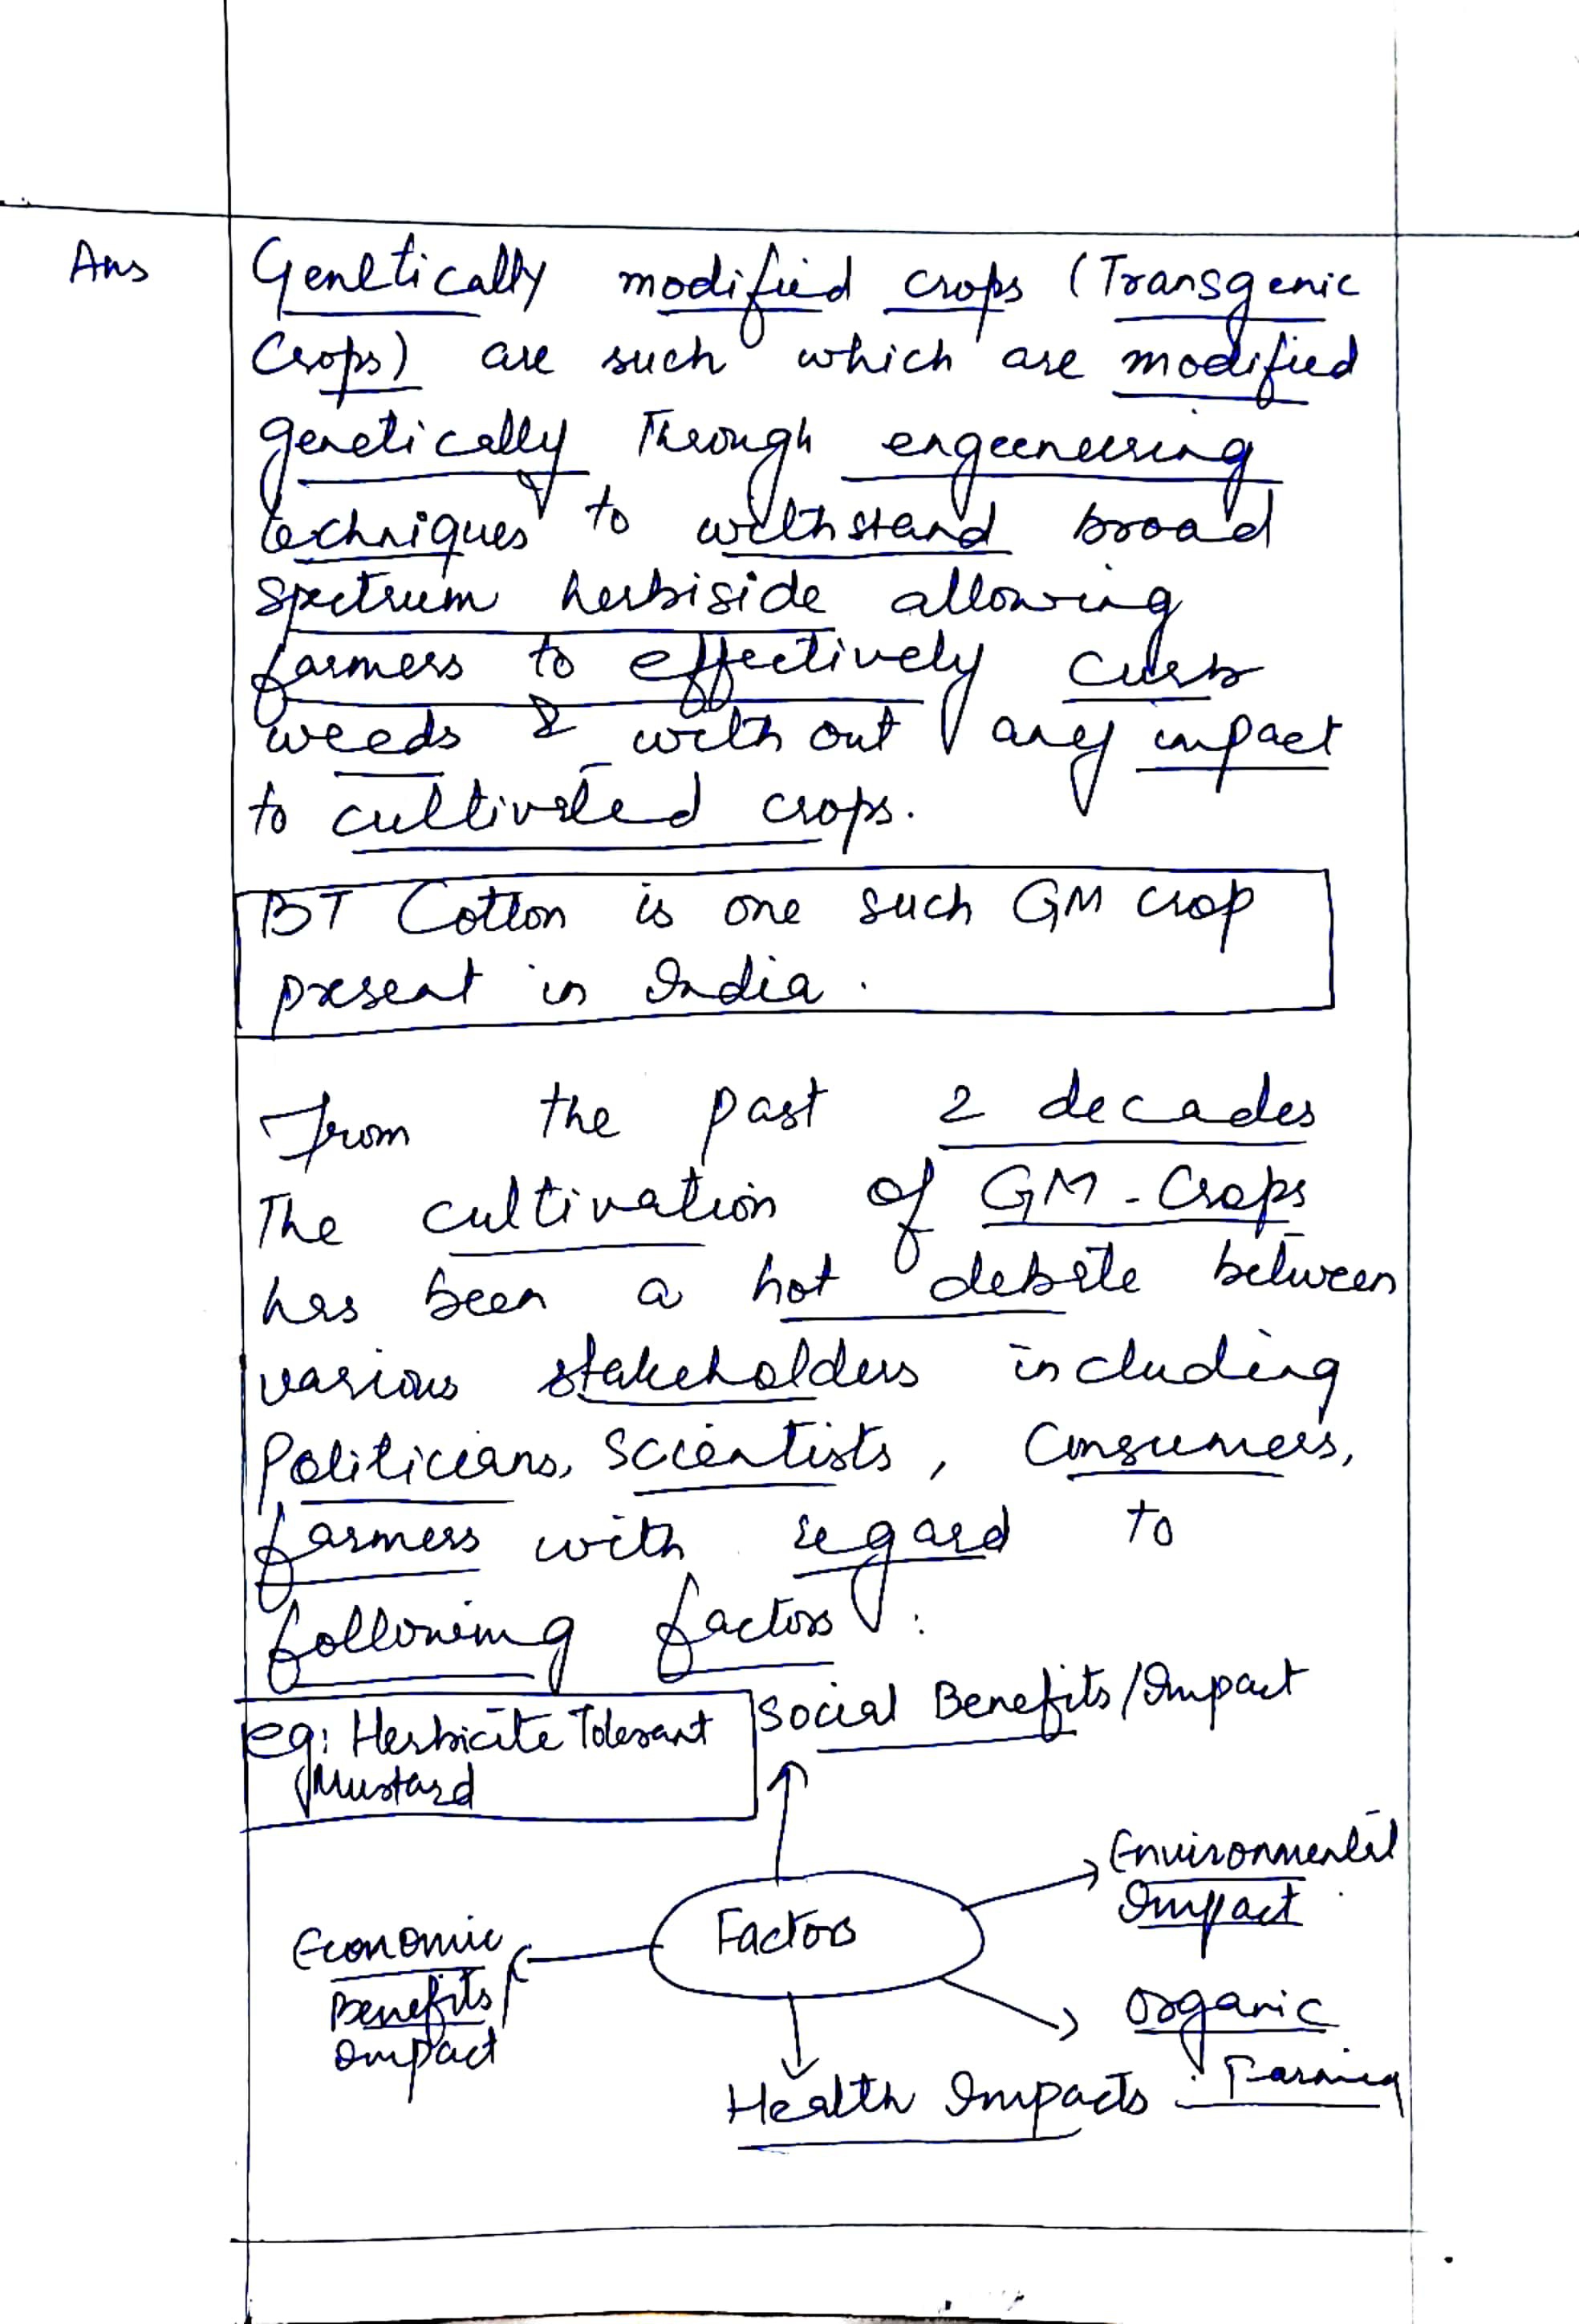 Ans
Genetically modified crops (Transgenic
Crops) are such which are modified
genetically Through engeeneering
techniques to withstand broad
spectrum herbiside allowing
farmers to effectively curb
weeds & without any impact
to cultivated crops.
BT Cotton is one such GM crop
present in India.
From the past 2 decades
The cultivation of GM-Crops
has been a hot debate between
various stakeholders including
Politicians, Scientists, Consumers,
farmers with regard to
following factors:
eg: Herbicite Tolerant
Mustard
Social Benefits/Impact
Environmental
Impact
Factors
Economic
Benefits/
Impact
Organic
Farming
Health Impacts